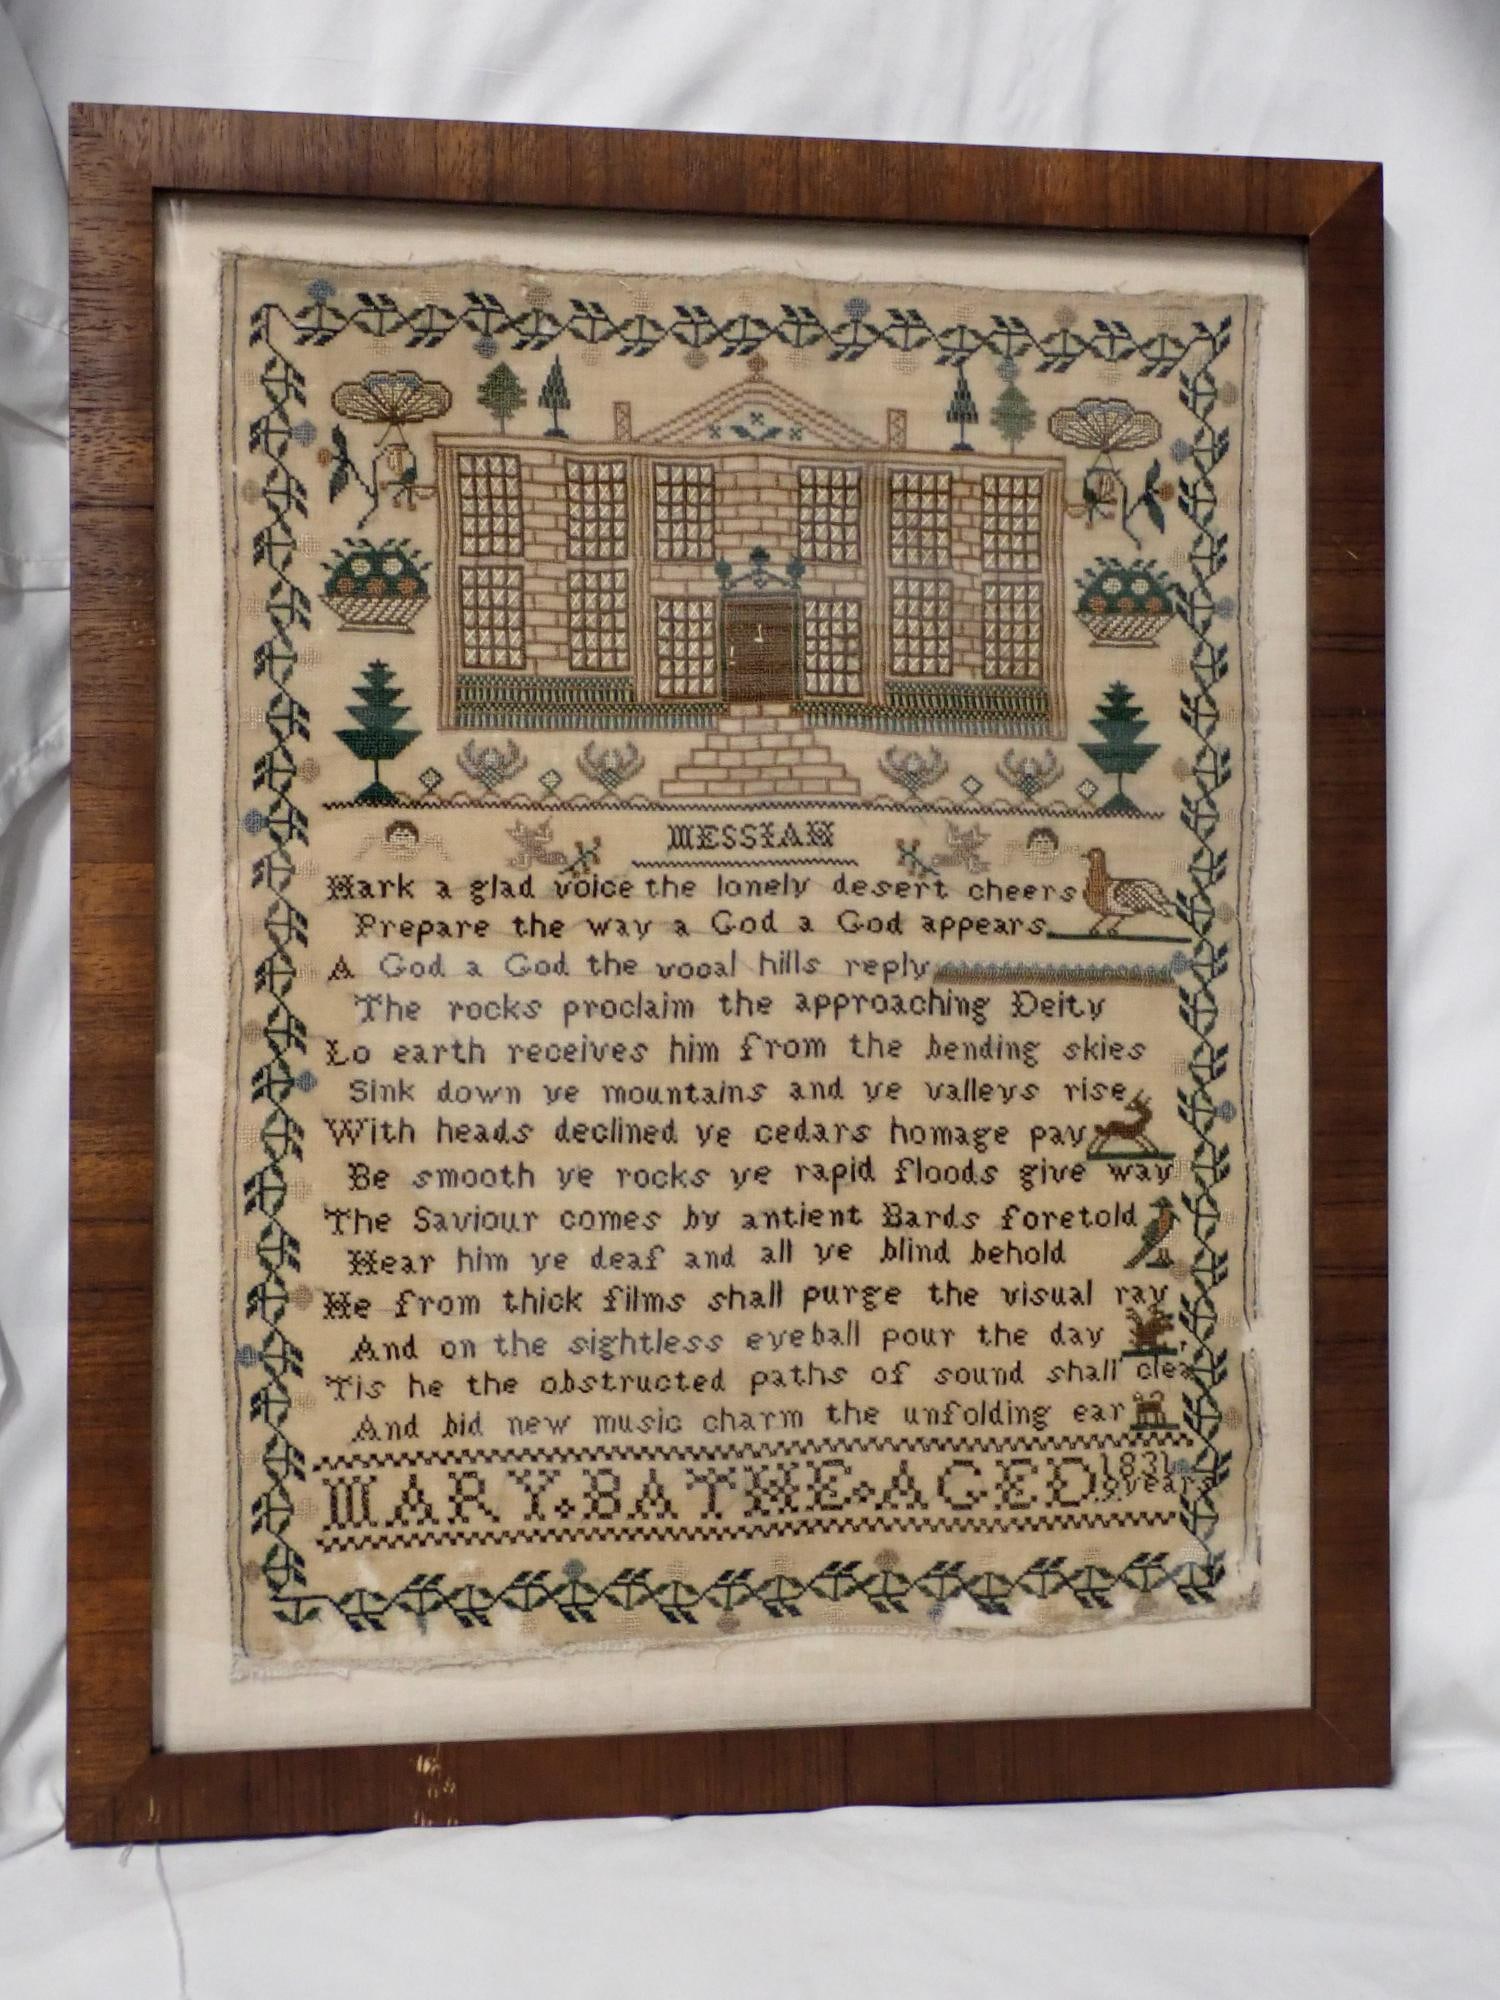 MESSIAH
Hark a glad voice the lonely desert cheers
Prepare the way a God a God appears
A God a God the vocal hills reply
The rocks proclaim the approaching Deity
Lo earth receives him from the bending skies
Sink down ye mountains and ye valleys rise
With heads declined ye cedars homage pay
Be smooth ye rocks ye rapid floods give way
The Saviour comes by antient Bards foretold
Hear him ye deaf and all ye blind behold
He from thick films shall purge the visual ray
And on the sightless eyeball pour the day
Tis he the obstructed paths of sound shall clea
And bid new music charm the unfolding ear
MARY BATHE AGED 9 years
1831